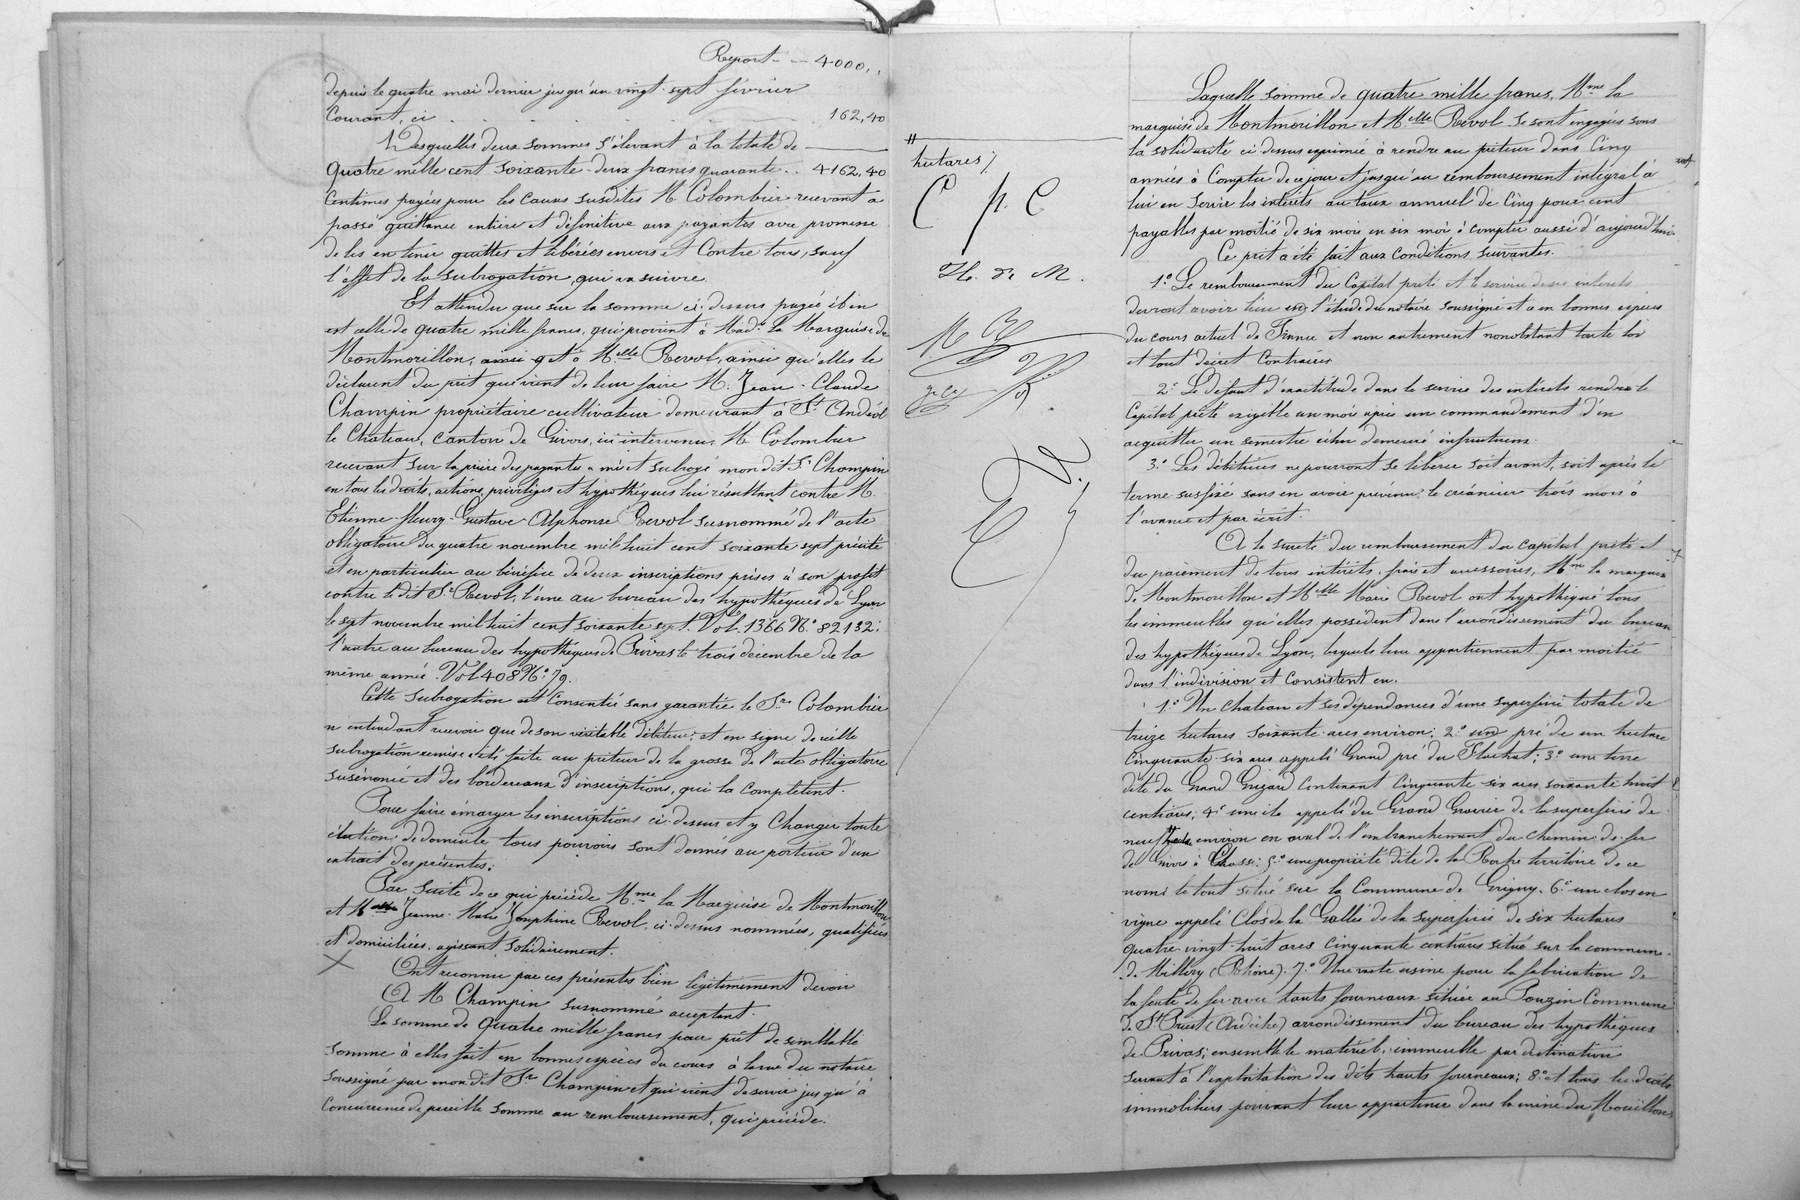 Report - - 4000,,
depuis le quatre mai dernier jusqu'au vingt-sept février
Courant, ci . . . . . . 162,40
Desquelles deux sommes s'élevant à la totale de
quatre mille cent soixante-deux francs quarante . . 4162,40
Centimes payées pour les causes susdites M Colombier recevant a
passé quittance entière et définitive aux payantes avec promesse
de les en tenir quittes et libérées envers et Contre tous, sauf
l'effet de la subrogation, qui va suivre.
Et attendu que sur la somme ci-dessus payée
est celle de quatre mille francs, qui provient à Made La Marquise de
Montmorillon, ainsi qu'à Melle Revol, ainsi qu'elles le
déclarent du prêt que vient de leur faire M. Jean-Claude
Champin propriétaire cultivateur demeurant à St Andéol
le Chateau, canton de Givors, ici intervenu, M Colombier
recevant sur la prière des payantes a mis et subrogé mon dit Sr Champin
en tous les droits, actions, privilèges et hypothèques lui résultant contre M.
Etienne-fleury-Gustave-Alphonse Revol susnommé de l'acte
obligatoire du quatre novembre mil huit cent soixante sept précité
et en particulier au bénéfice de deux inscriptions prises à son profit
contre le dit Sr Revol, l'une au bureau des hypothèques de Lyon
le sept novembre mil huit cent soixante sept. Vol. 1366 No 82132:
l'autre au bureau des hypothèques de Privas le trois décembre de la
même année. Vol 408 No 79.
Cette subrogation est Consentie sans garantie le Sr Colombier
n'entendant recevoir que de son véritable débiteur; et en signe de cette
subrogation remise a été faite au prêteur de la grosse de l'acte obligatoire
susénoncé et des bordereaux d'inscriptions, qui la complètent.
Pour faire émarger les inscriptions ci-dessus et y Changer toute
élection de domicile tous pouvoirs sont donnés au porteur d'un
extrait des présentes.
Par suite de ce qui précède Mme la Marquise de Montmorillon
et Melle Jeanne-Marie Josephine Revol, ci-dessus nommées, qualifiées
et domiciliées, agissant solidairement.
Ont reconnu par ces présentes bien légitimement devoir
A M Champin susnommé acceptant.
La somme de Quatre mille francs pour prêt de semblable
somme à elles fait en bonnes espèces du cours à la vue du notaire
soussigné par mon dit Sr Champin et qui vient de servir jusqu'à
Concurrence de pareille somme au remboursement, qui précède.
hectares /
C p. C
H. de M.
M R
Laquelle somme de quatre mille francs, Mme la
marquise de Montmorillon et Melle Revol se sont engagées sous
la solidarité ci dessus exprimée à rendre au prêteur dans Cinq
années à Compter de ce jour et jusqu'au remboursement intégral à
lui en servir les intérêts au taux annuel de Cinq pour cent
payables par moitié de six mois en six mois à compter aussi d'aujourd'hui
Ce prêt a été fait aux Conditions suivantes.
1o Le remboursement du Capital prêté et le service de ses intérêts
devront avoir lieu en l'étude du notaire soussigné et en bonnes espèces
du cours actuel de France et non autrement nonobstant toute loi
et tout décret Contraires
2o Le défaut d'exactitude dans le service des intérêts rendra le
Capital prêté exigible un mois après un commandement d'en
acquitter un semestre échu demeuré infructueux.
3o Les débitrices ne pourront se libérer soit avant, soit après le
terme susfixé sans en avoir prévenu, le créancier trois mois à
l'avance et par écrit.
A la sureté du remboursement du capital prêté et
du paiement de tous intérêts, frais et accessoires, Mme la marquise
de Montmorillon et Melle Marie Revol ont hypothéqué tous
les immeubles qu'elles possèdent dans l'arrondissement du bureau
des hypothèques de Lyon, lesquels leur appartiennent par moitié
dans l'indivision et Consistent en.
1o Un Chateau et ses dépendances d'une superficie totale de
treize hectares soixante ares environ; 2o un pré de un hectare
Cinquante-six ares appelé Grand pré du Fluchat; 3o une terre
dite du Grand Gregard Contenant Cinquante-six ares soixante huit
centiares; 4o une ile appelée du Grand Gravier de la superficie de
neuf environ en aval de l'embranchement du Chemin de fer
de Givors à Chasse; 5o une propriété dite de la Roche territoire de ce
nom; le tout situé sur la Commune de Grigny. 6o un clos en
vigne appelé Clos de la Gallée de la superficie de six hectares
quatre-vingt-huit ares cinquante centiares situé sur la commune
de Millery (Rhône). 7o Une vaste usine pour la fabrication de
la fonte de fer avec hauts fourneaux située au Pouzin Commune
de St Priest (Ardèche) arrondissement du bureau des hypothèques
de Privas; ensemble le matériel, immeuble par destination
servant à l'exploitation des dits hauts fourneaux; 8o et tous les droits
immobiliers pouvant leur appartenir dans la mine du Mouillon